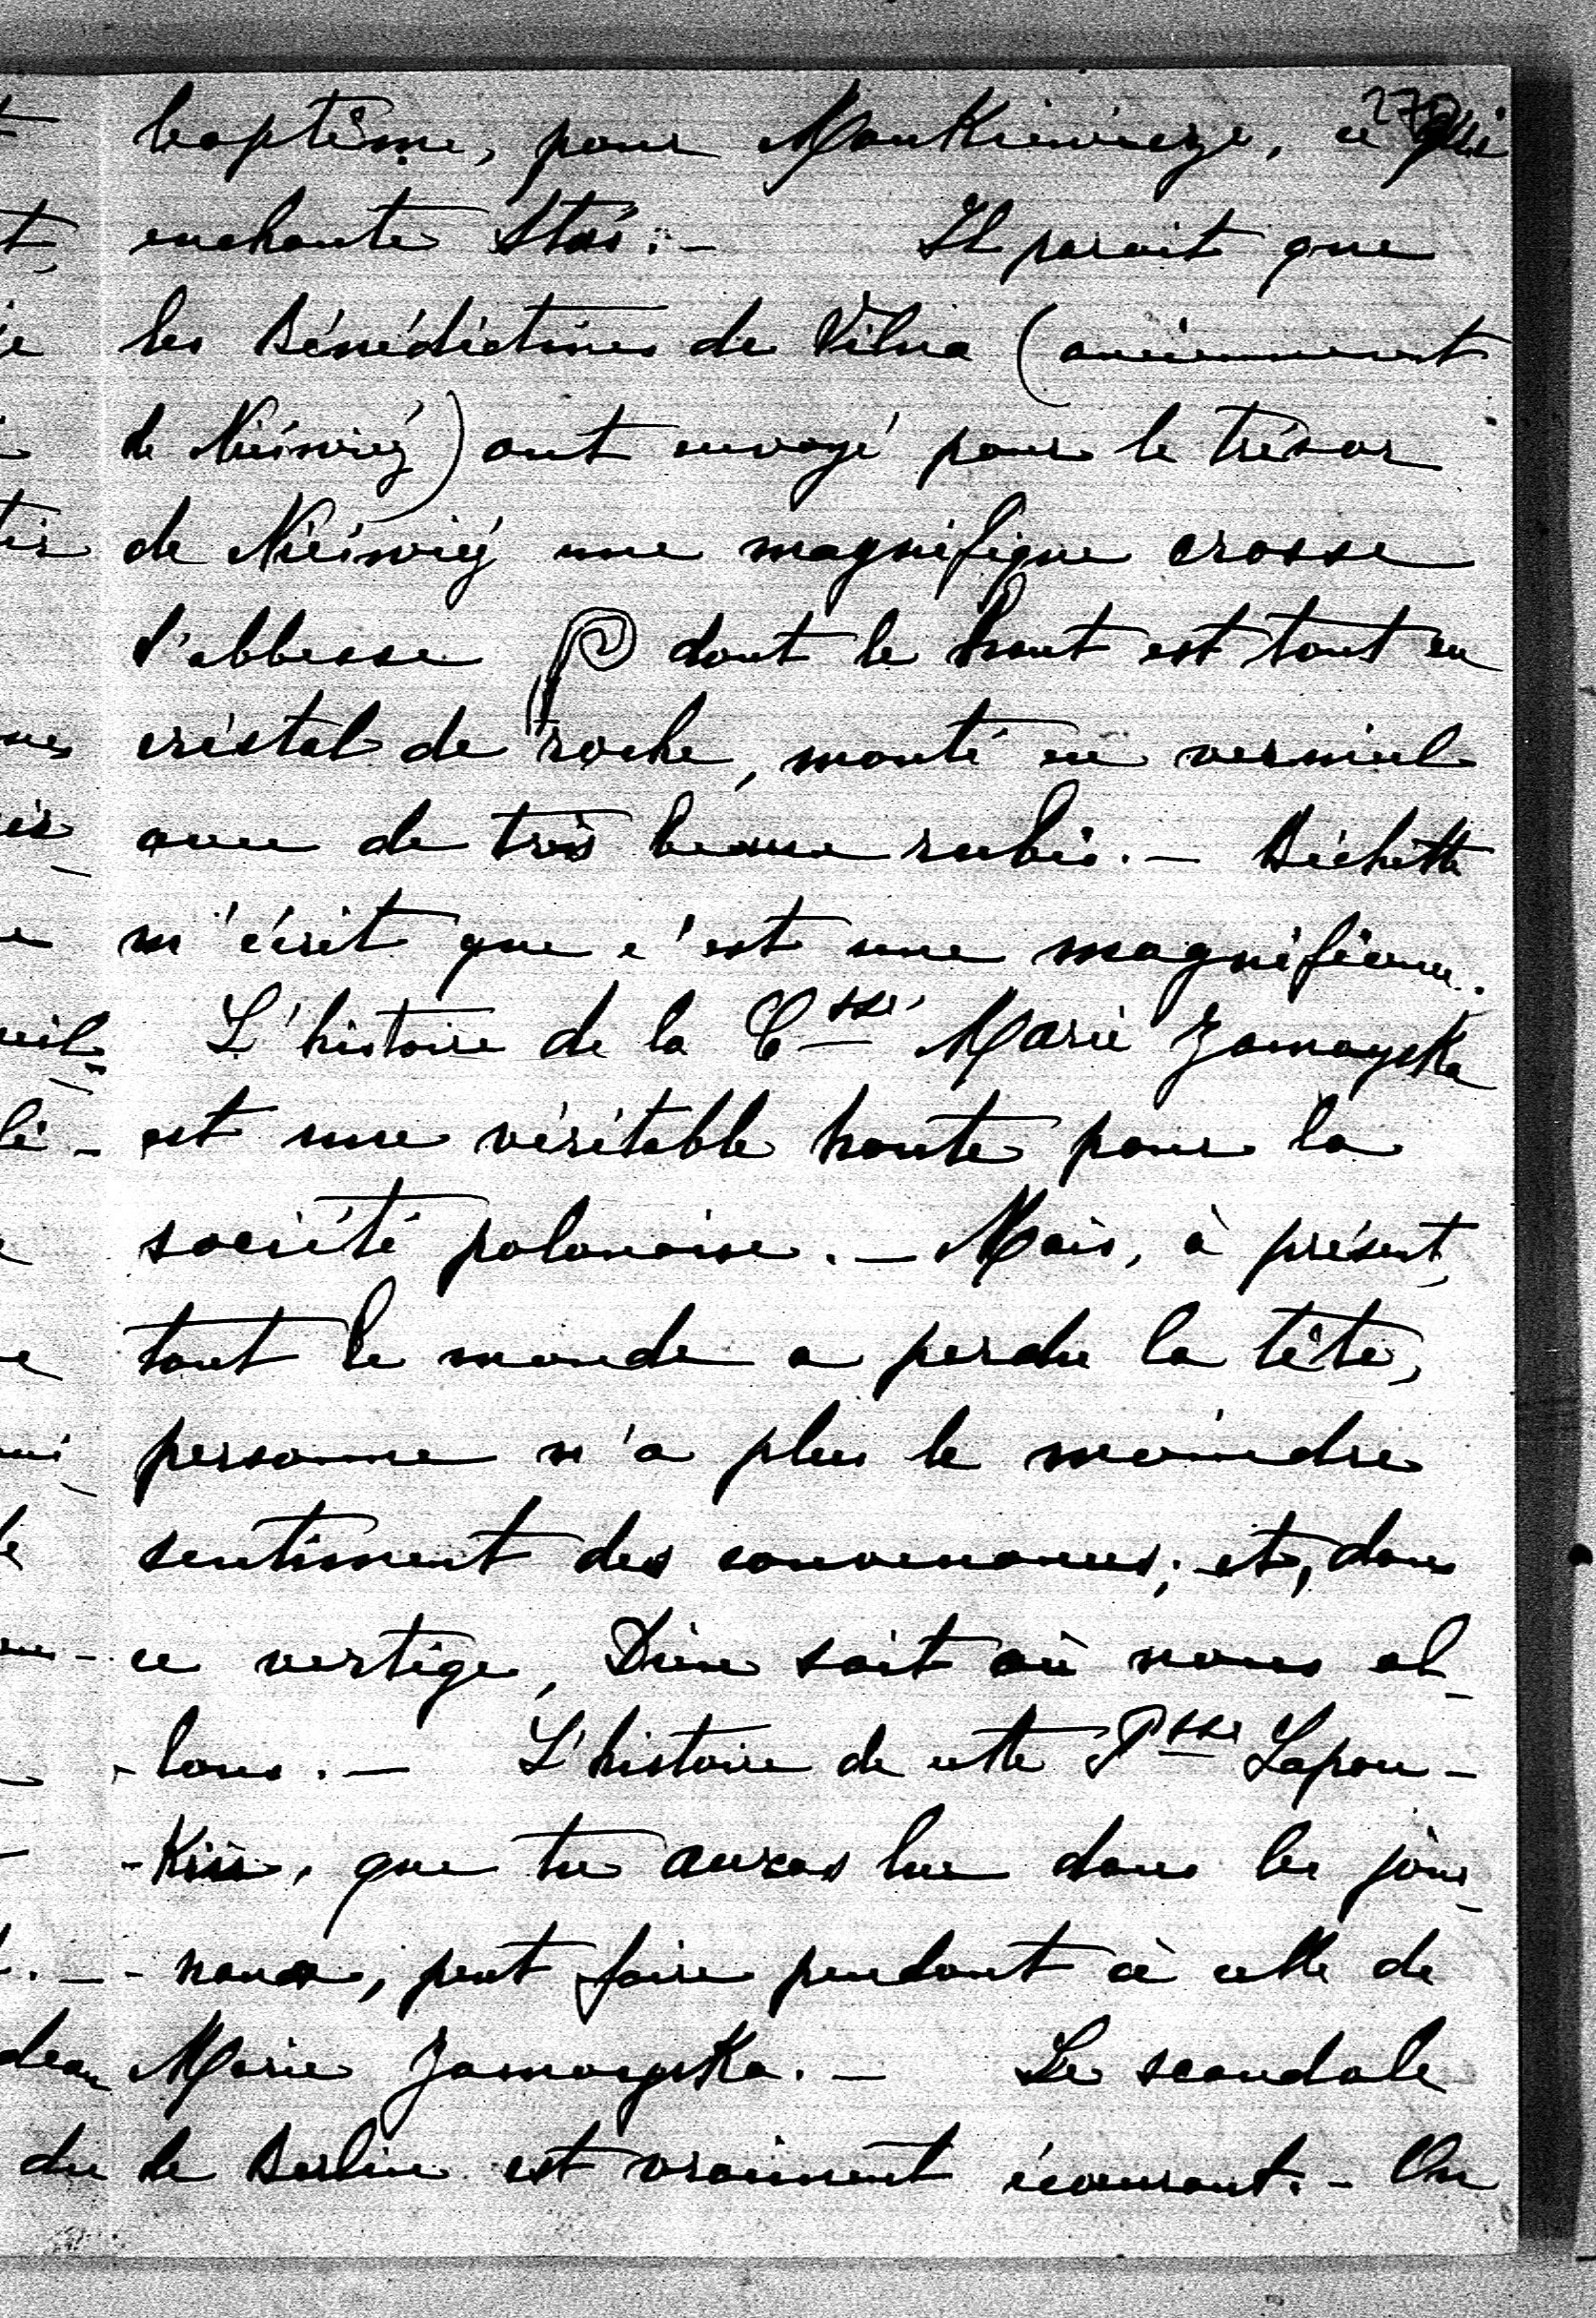 baptême, pour Mankiewicze, ce qui
enchante Staś. – Il parait que
les Bénédictines de Vilna (anciennement
de Nieśwież) ont envoyé pour le trésor
de Nieśwież une magnifique crosse
d'abbesse dont le haut est tout en
cristal de roche, monté en vermeil
avec de très beaux rubis. – Bichette
m'écrit que c'est une magnificence.
L'histoire de la Csse Marie Zamoyska
est une véritable honte pour la
société polonaise. – Mais, à présent,
tout le monde a perdu la tête,
personne n'a plus le moindre
sentiment des convenances; et, dans
ce vertige, Dieu sait où nous al-
-lons. – L'histoire de cette Psse Lapou-
-Kiń, que tu auras lue dans les jour-
-naux, peut faire pendant à celle de
Marie Zamoyska. – Le scandale
de Berlin est vraiment écœurant. – On